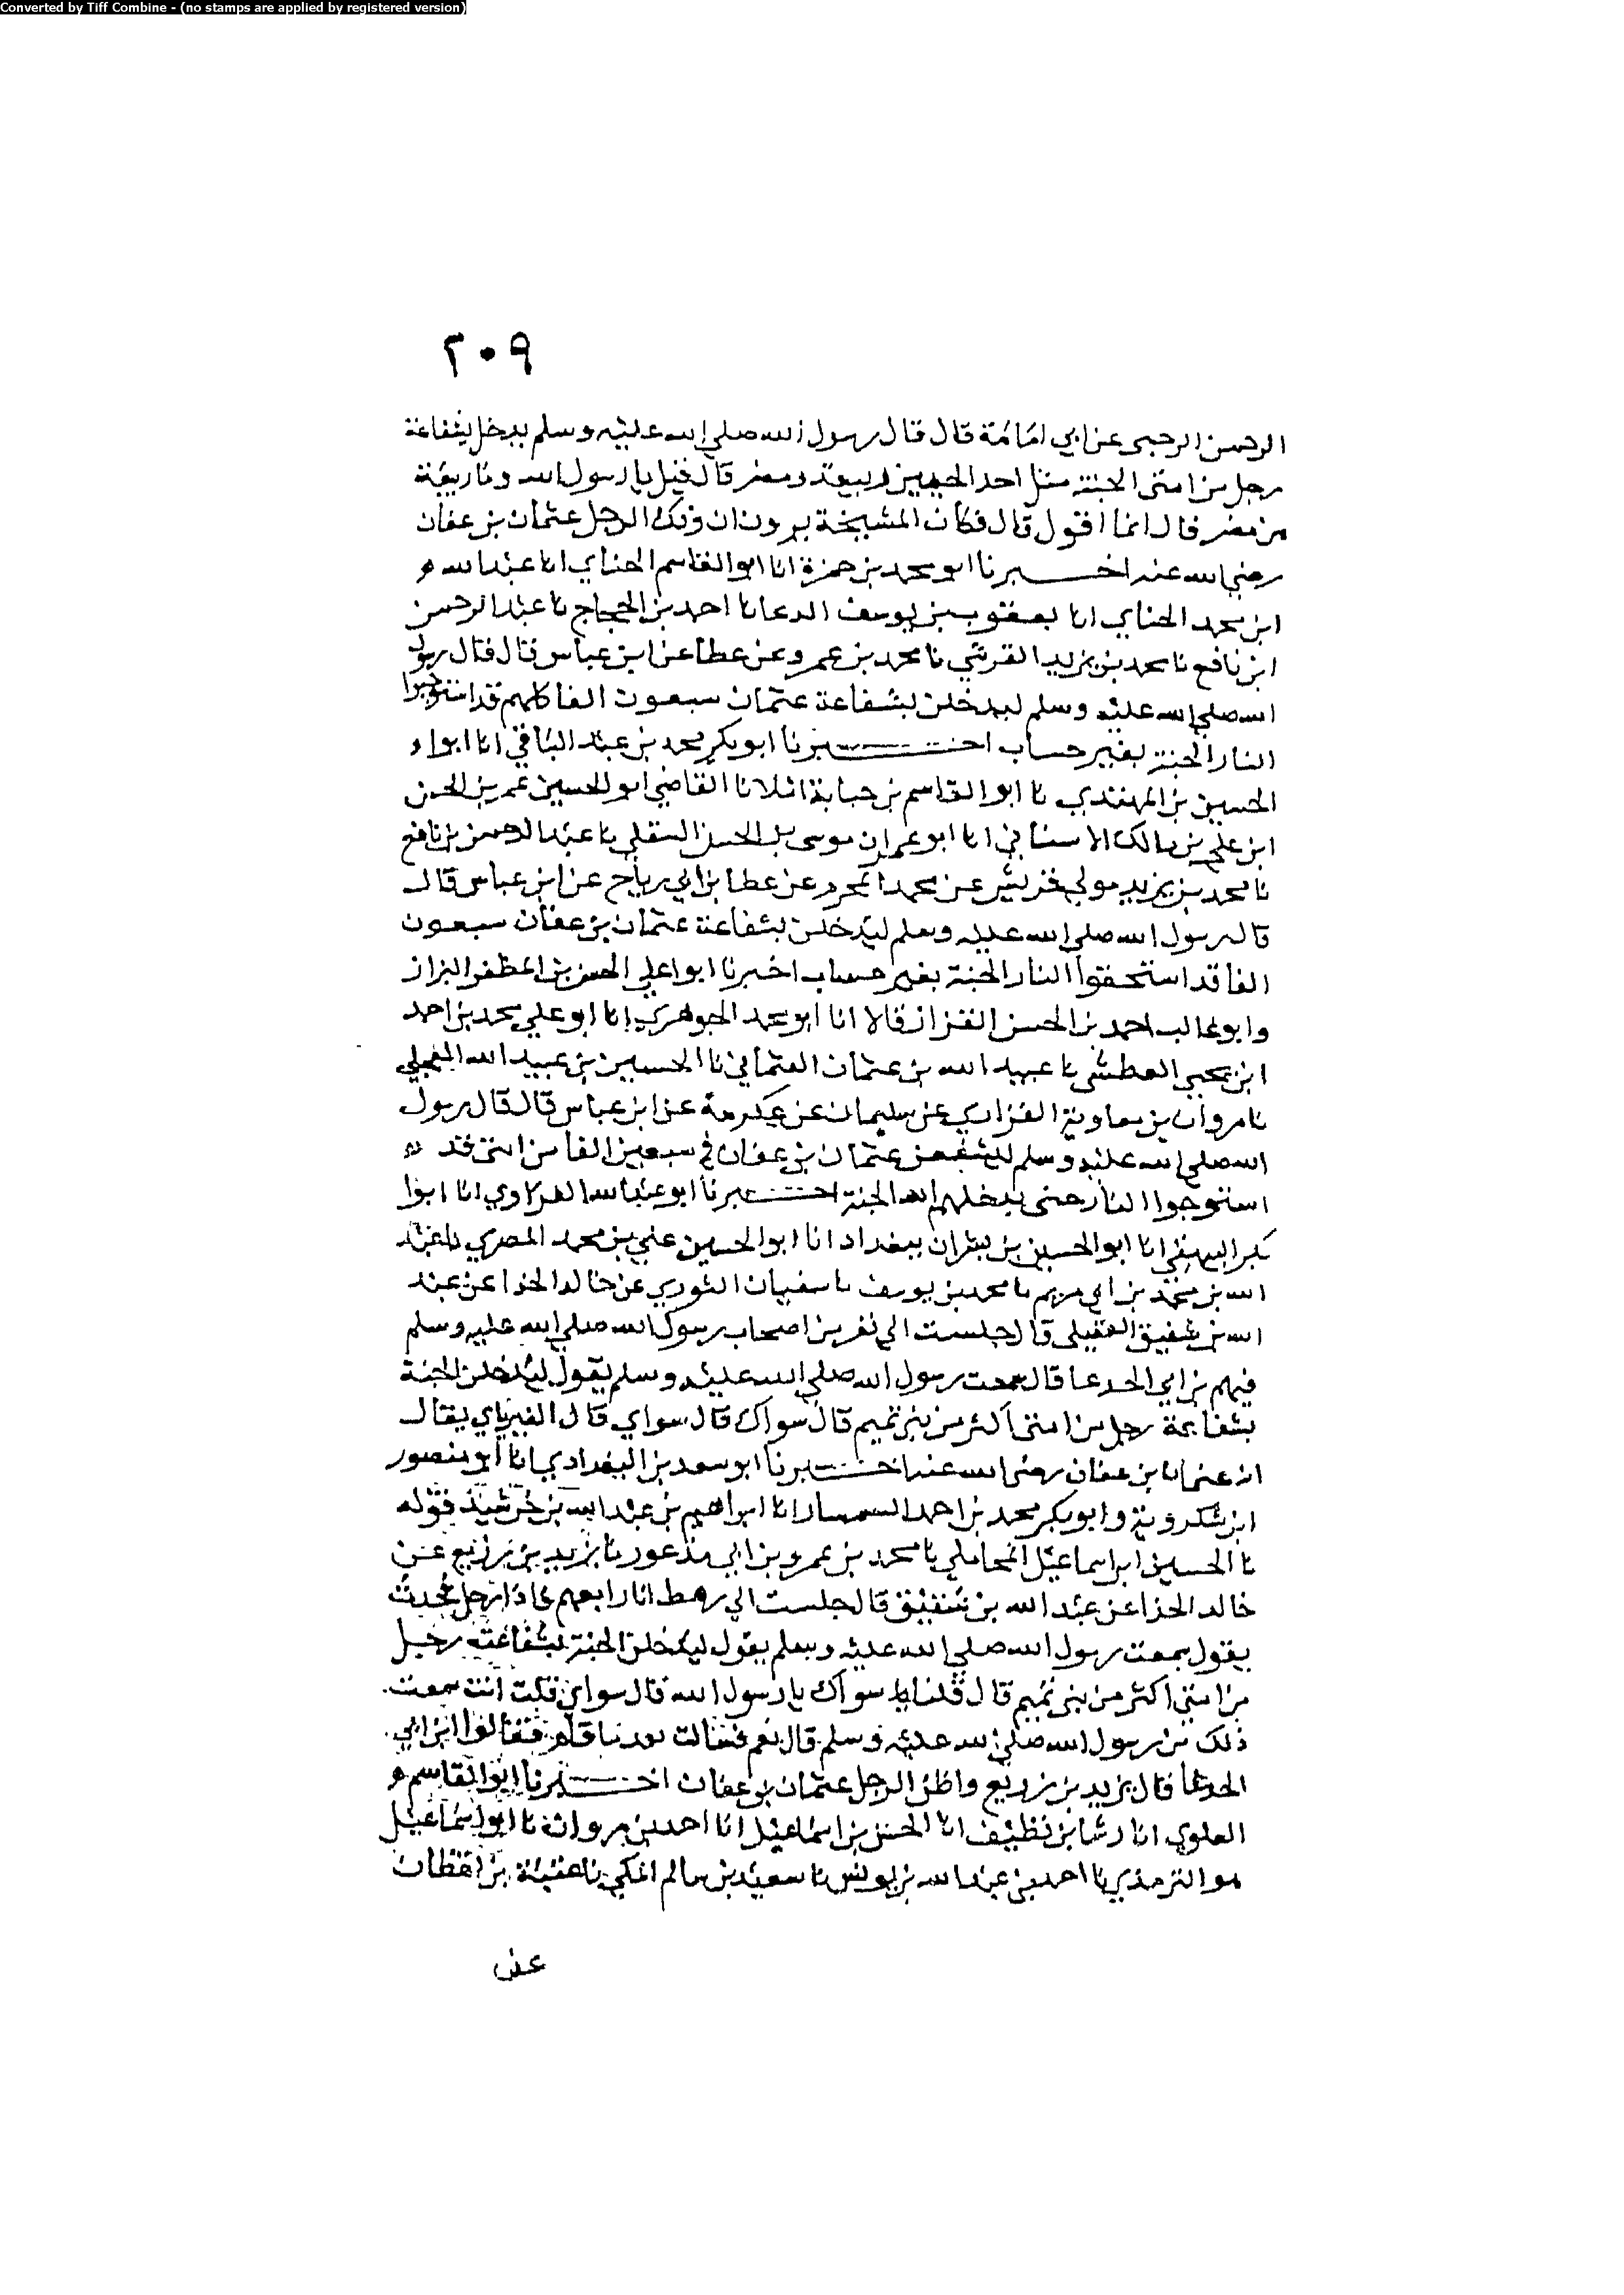 Converted by Tiff Combine - (no stamps are applied by registered version)
٢٠٩
الرحمن الرحبى عن ابي امامة قال قال رسول الله صلى الله عليه وسلم يدخل بشفاعة
رجل من امتى الجنة مثل احد الحيين ربيعة ومضر قال فقيل يا رسول الله وما ربيعة
من مضر قال انما اقول قال فكان المشيخة يرون ان ذلك الرجل عثمان بن عفان
رضي الله عنه اخبرنا ابو محمد بن حمزة انا ابو القاسم الحناي انا عبد الله
ابن محمد الحناي انا يعقوب بن يوسف الدعا نا احمد بن الحجاج نا عبد الرحمن
ابن نافع نا محمد بن يزيد القرشي نا محمد بن عمرو عن عطا عن ابن عباس قال قال رسول
الله صلى الله عليه وسلم ليدخلن بشفاعة عثمان سبعون الفا كلهم قد استوجبوا
النار الجنة بغير حساب اخبرنا ابو بكر محمد بن عبد الباقي انا ابوا
الحسين بن المهتدي نا ابو القاسم بن حبابة املا نا القاضي ابو الحسين عمر بن الحسن
ابن علي بن مالك الاسناني انا ابو عمران موسى بن الحسن السقلي نا عبد الرحمن بن نافع
نا محمد بن يزيد مولى قريش عن محمد المحرم عن عطا بن ابي رباح عن ابن عباس قال
قال رسول الله صلى الله عليه وسلم ليدخلن بشفاعة عثمان بن عفان سبعون
الفا قد استحقوا النار الجنة بغير حساب اخبرنا ابوا علي الحسن بن المظفر البزاز
وابو غالب احمد بن الحسن القزاز قالا انا ابو محمد الجوهري انا ابو علي محمد بن احمد
ابن يحيي العطشى نا عبيد الله بن عثمان العثماني نا الحسين بن عبيد الله العجلي
نا مروان بن معاوية الفزاري عن سليمان عن عكرمة عن ابن عباس قال قال رسول
الله صلى الله عليه وسلم ليشفعن عثمان بن عفان في سبعين الفا من امتى قد
استوجبوا النار حتى يدخلهم الله الجنة اخبرنا ابو عبد الله الفراوي انا ابوا
بكر البيهقي انا ابو الحسين بن بشران ببغداد انا ابو الحسين علي بن محمد المصري نا عبد
الله بن محمد بن ابي مريم نا محمد بن يوسف نا سفيان الثوري عن خالد الحذا عن عبد
الله بن شقيق العقيلي قال جلست الى نفر من اصحاب رسول الله صلى الله عليه وسلم
فيهم بن ابي الجدعا قال سمعت رسول الله صلى الله عليه وسلم يقول ليدخلن الجنة
بشفاعة رجل من امتى اكثر من بني تميم قال سواك قال سواي قال الفريابي يقال
انه عثمان بن عفان رضى الله عنه اخبرنا ابو سعد بن البغدادي انا ابو منصور
ابن شكروية وابو بكر محمد بن احمد السمسار انا ابراهيم بن عبد الله بن خرشيذ قوله
نا الحسين ابن اسماعيل المحاملي نا محمد بن عمرو بن ابي مذعور نا يزيد بن زريع عن
خالد الحذا عن عبد الله بن شقيق قال جلست الي رهط انا رابعهم فاذا رجل يحدث
يقول سمعت رسول الله صلى الله عليه وسلم يقول ليدخلن الجنة بشفاعته رجل
من امتي اكثر من بني تميم قال قلنا سواك يا رسول الله قال سواي قلت انت سمعت
ذلك من رسول الله صلى الله عليه وسلم قال نعم فقالوا ابن ابي
الجدعا قال يزيد بن زريع واظن الرجل عثمان بن عفان اخبرنا ابو القاسم
العلوي انا رشا بن نظيف انا الحسن بن اسماعيل انا احمد بن مروان نا ابو اسماعيل
هو الترمذي نا احمد بن عبد الله بن يونس نا سعيد بن سالم المكي نا عنيسة بن القطان
عن